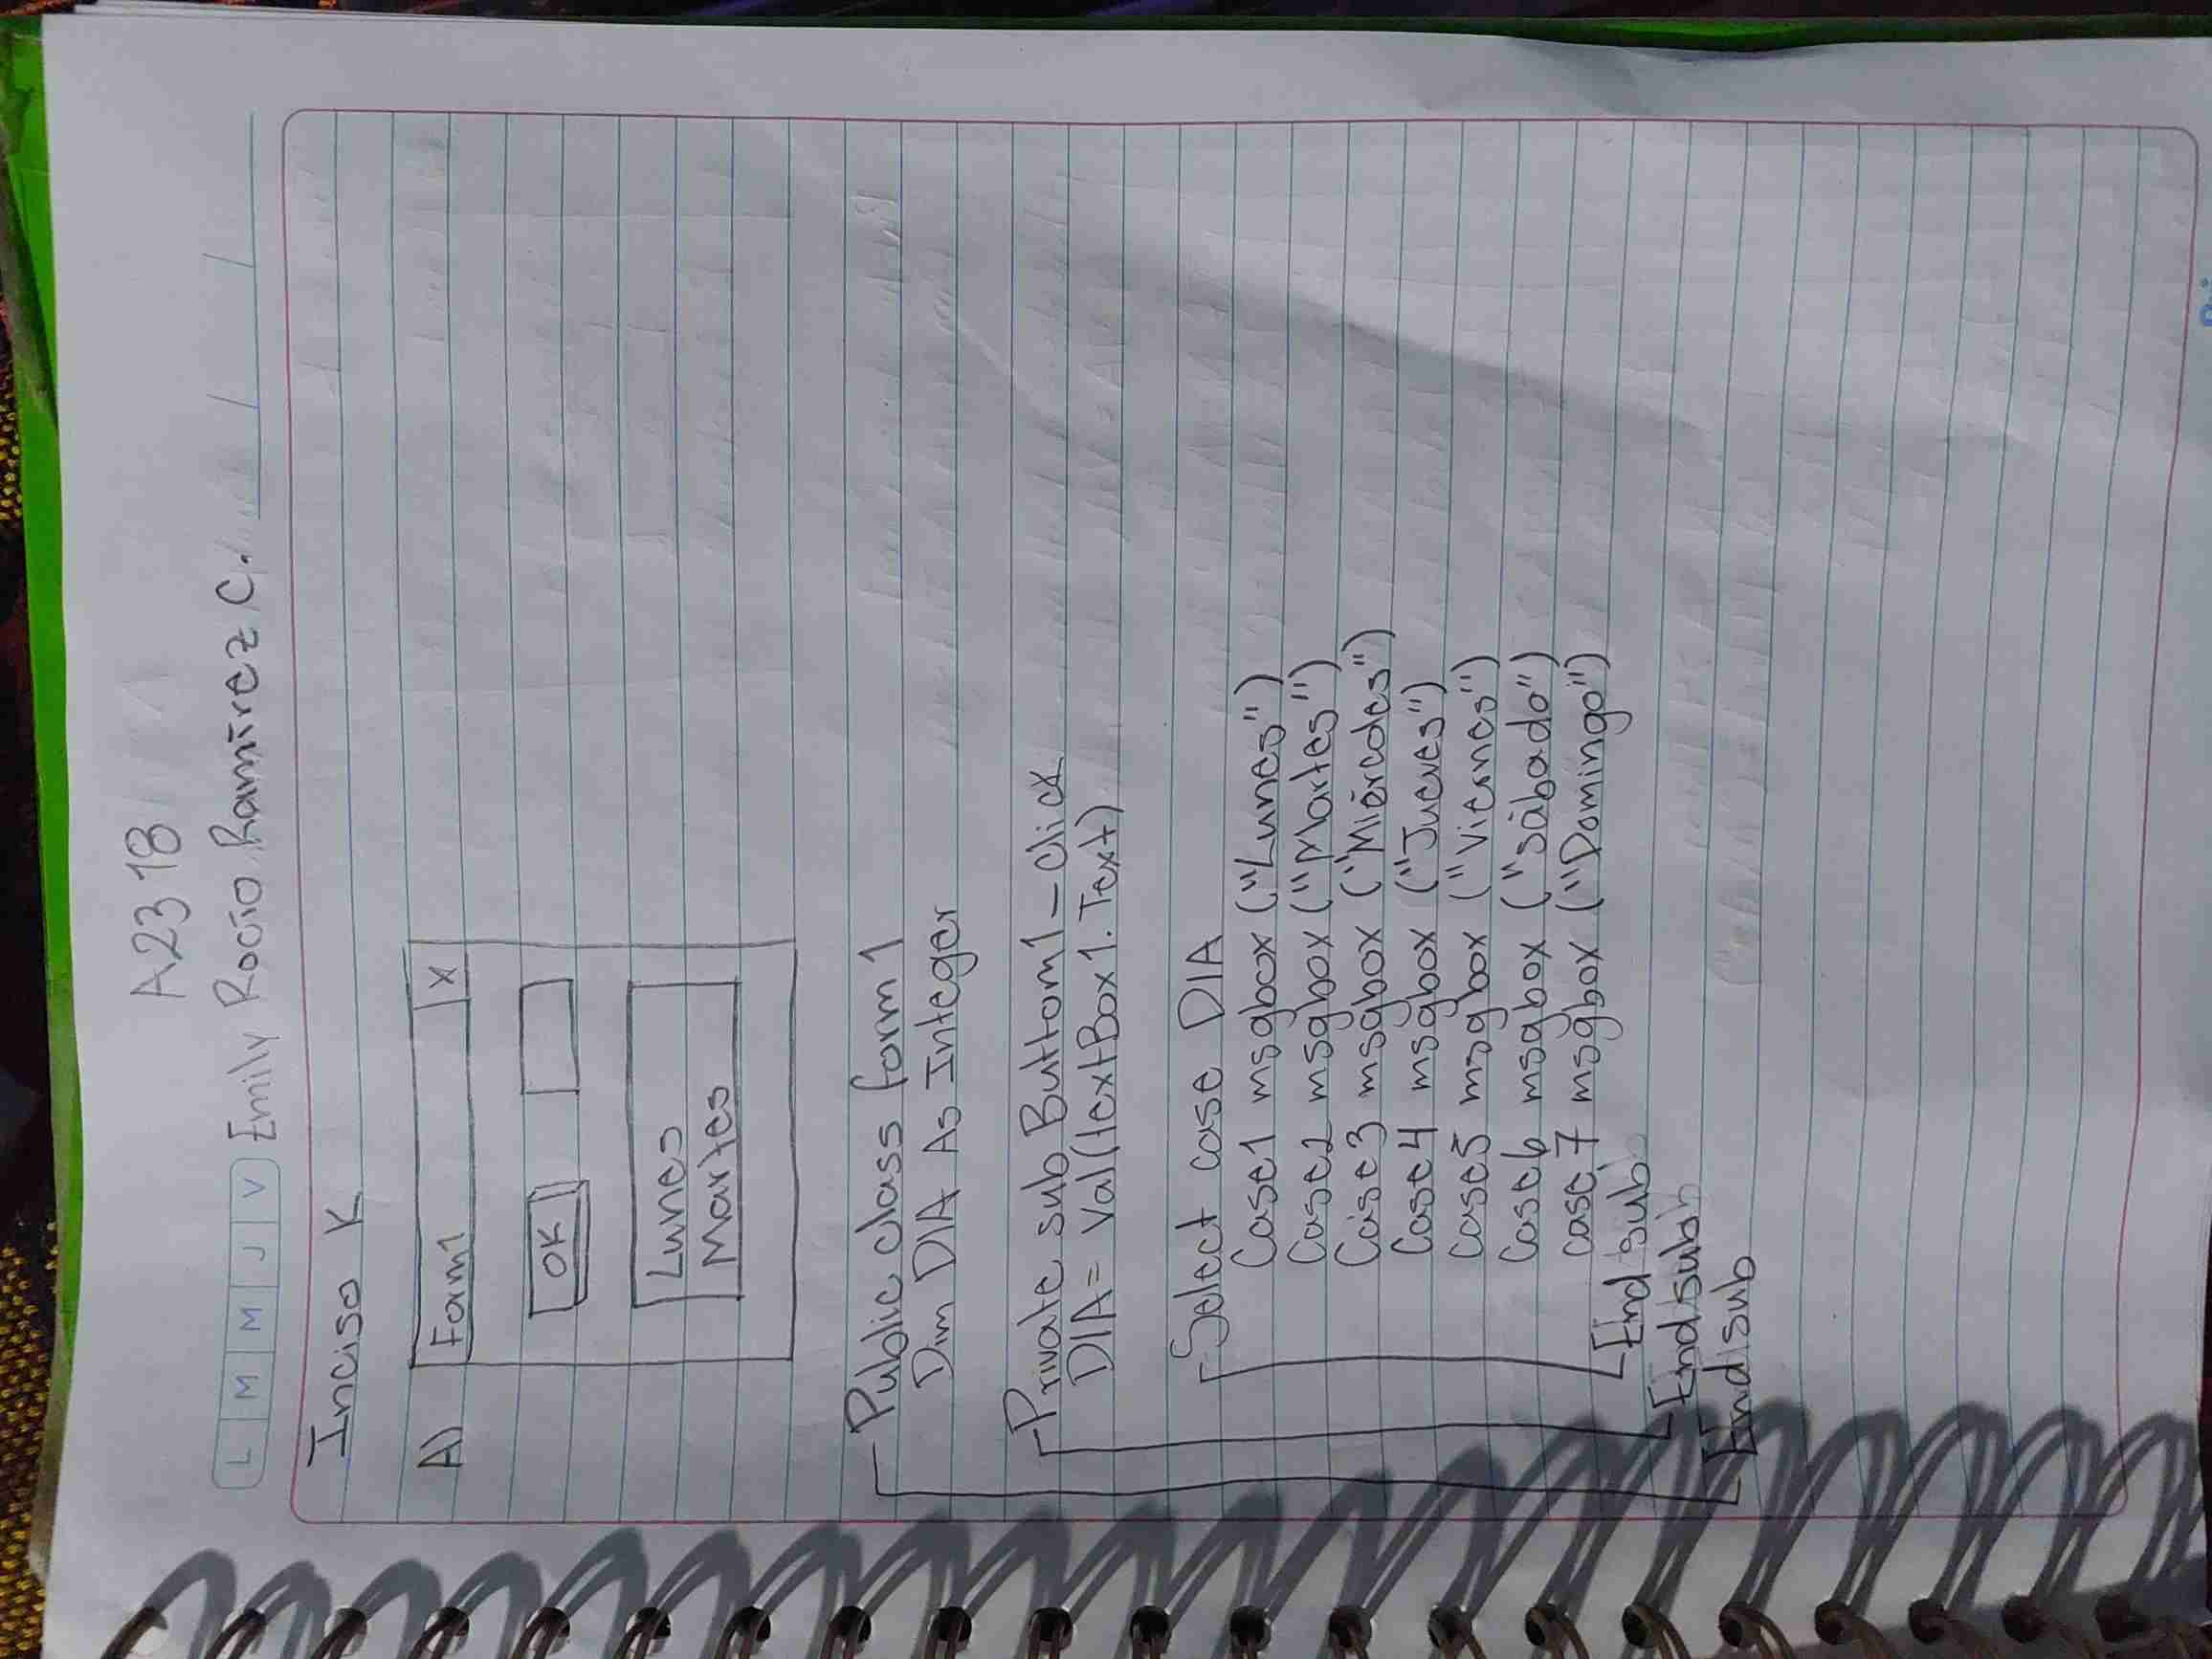 A2318
L M M J V Emily Rocio Ramírez C.
Inciso K
A) Form1 X
OK
Lunes
Martes
Public class form 1
Dim DIA As Integer
Private sub Buttom1-click
DIA = Val(TextBox1.Text)
Select case DIA
Case1 msgbox ("Lunes")
Case2 msgbox ("Martes")
Case3 msgbox ("Miércoles")
Case4 msgbox ("Jueves")
Case5 msgbox ("Viernes")
Case6 msgbox ("sábado")
case7 msgbox ("Domingo")
End sub
End sub
End sub